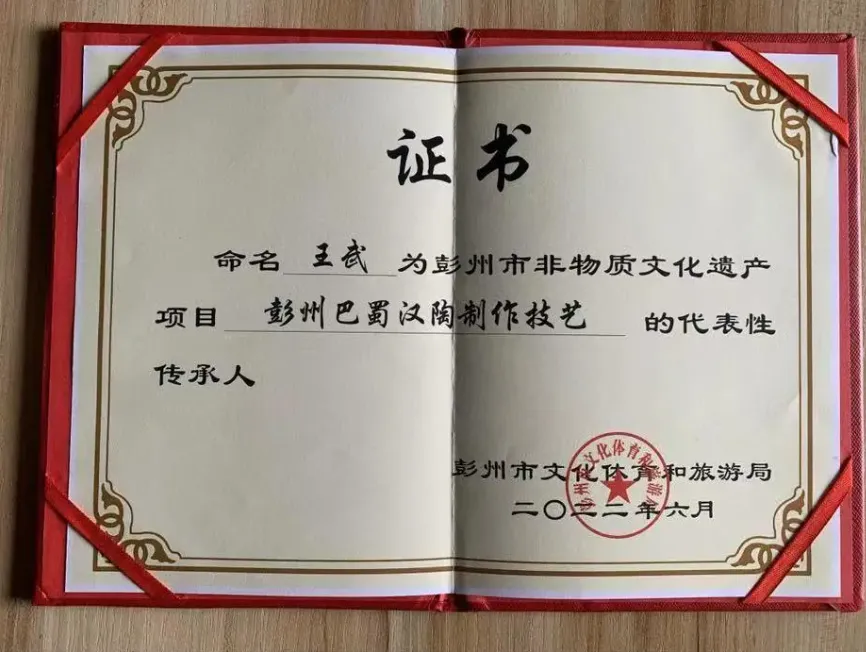 证书
命名王武为彭州市非物质文化遗产
项目彭州巴蜀汉陶制作技艺的代表性
传承人
彭州市文化体育和旅游局
二〇二二年六月